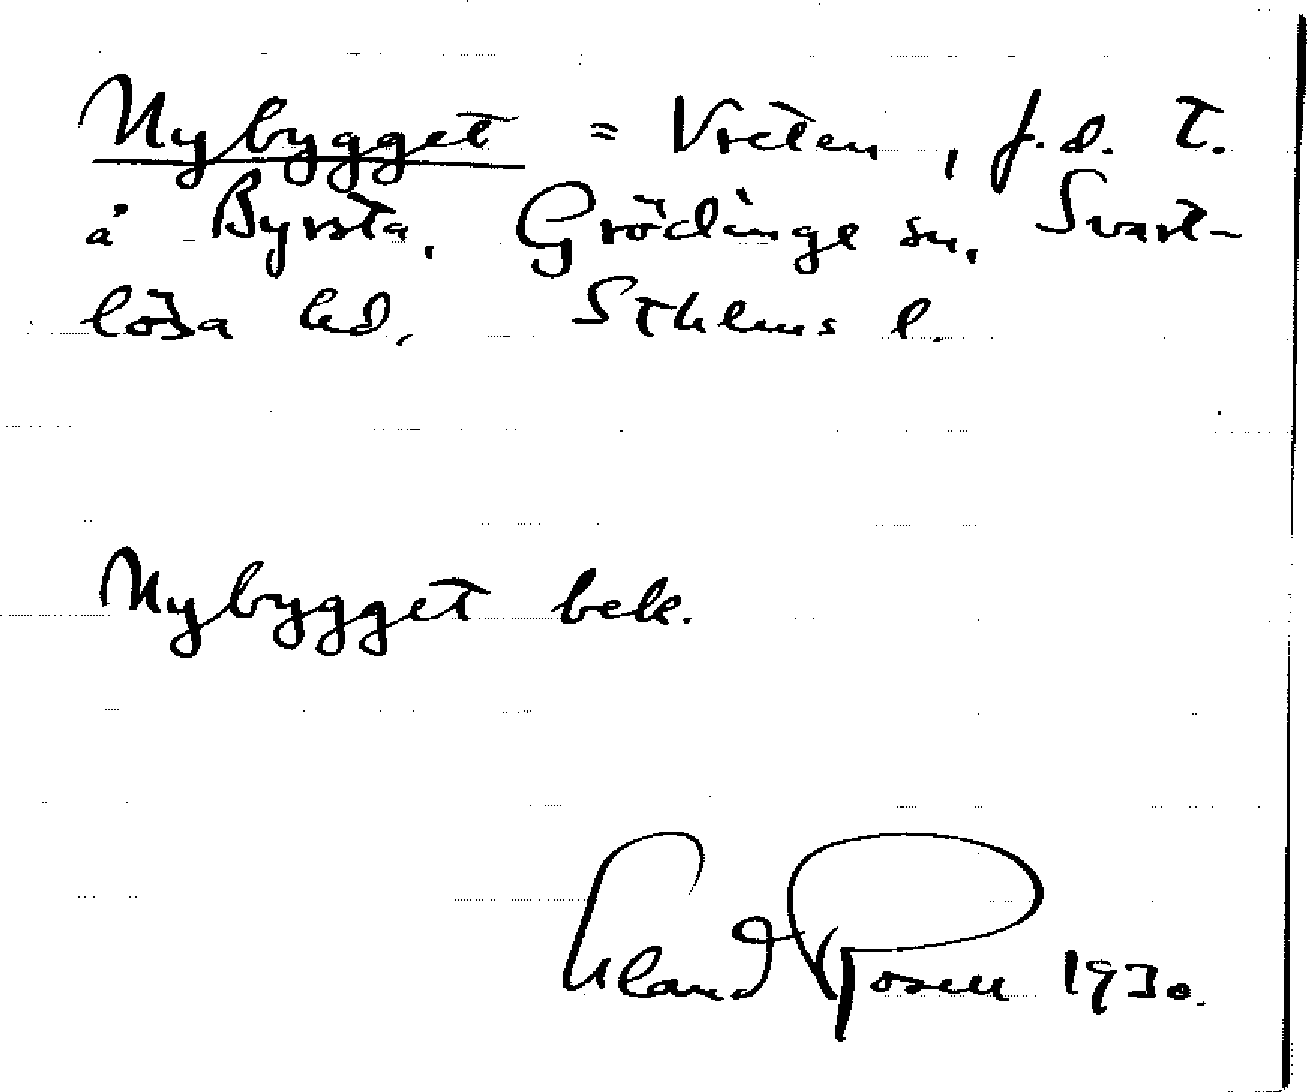 Nybygget = Vreten, f.d. t.
å Byrsta, Grödinge sn, Svart-
lösa hd, Sthlms l.
Nybygget bek.
Rosell 1930.